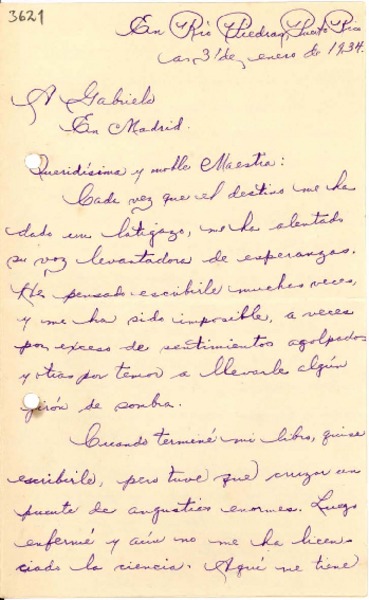 3621
En Río Piedras, Puerto Rico
a 31 de enero de 1934.
A Gabriela
En Madrid.
Queridísima y noble Maestra:
Cada vez que el destino me ha
dado un latigazo, me ha alentado
su voz levantadora de esperanzas.
He pensado escribirle muchas veces,
y me ha sido imposible, a veces
por exceso de sentimientos agolpados
y otras por temor a llevarle algún
girón de sombra.
Cuando terminé mi libro, quise
escribirle, pero tuve que cruzar un
puente de angustias enormes. Luego
enfermé y aún no me ha licen-
ciado la ciencia. Aquí me tiene